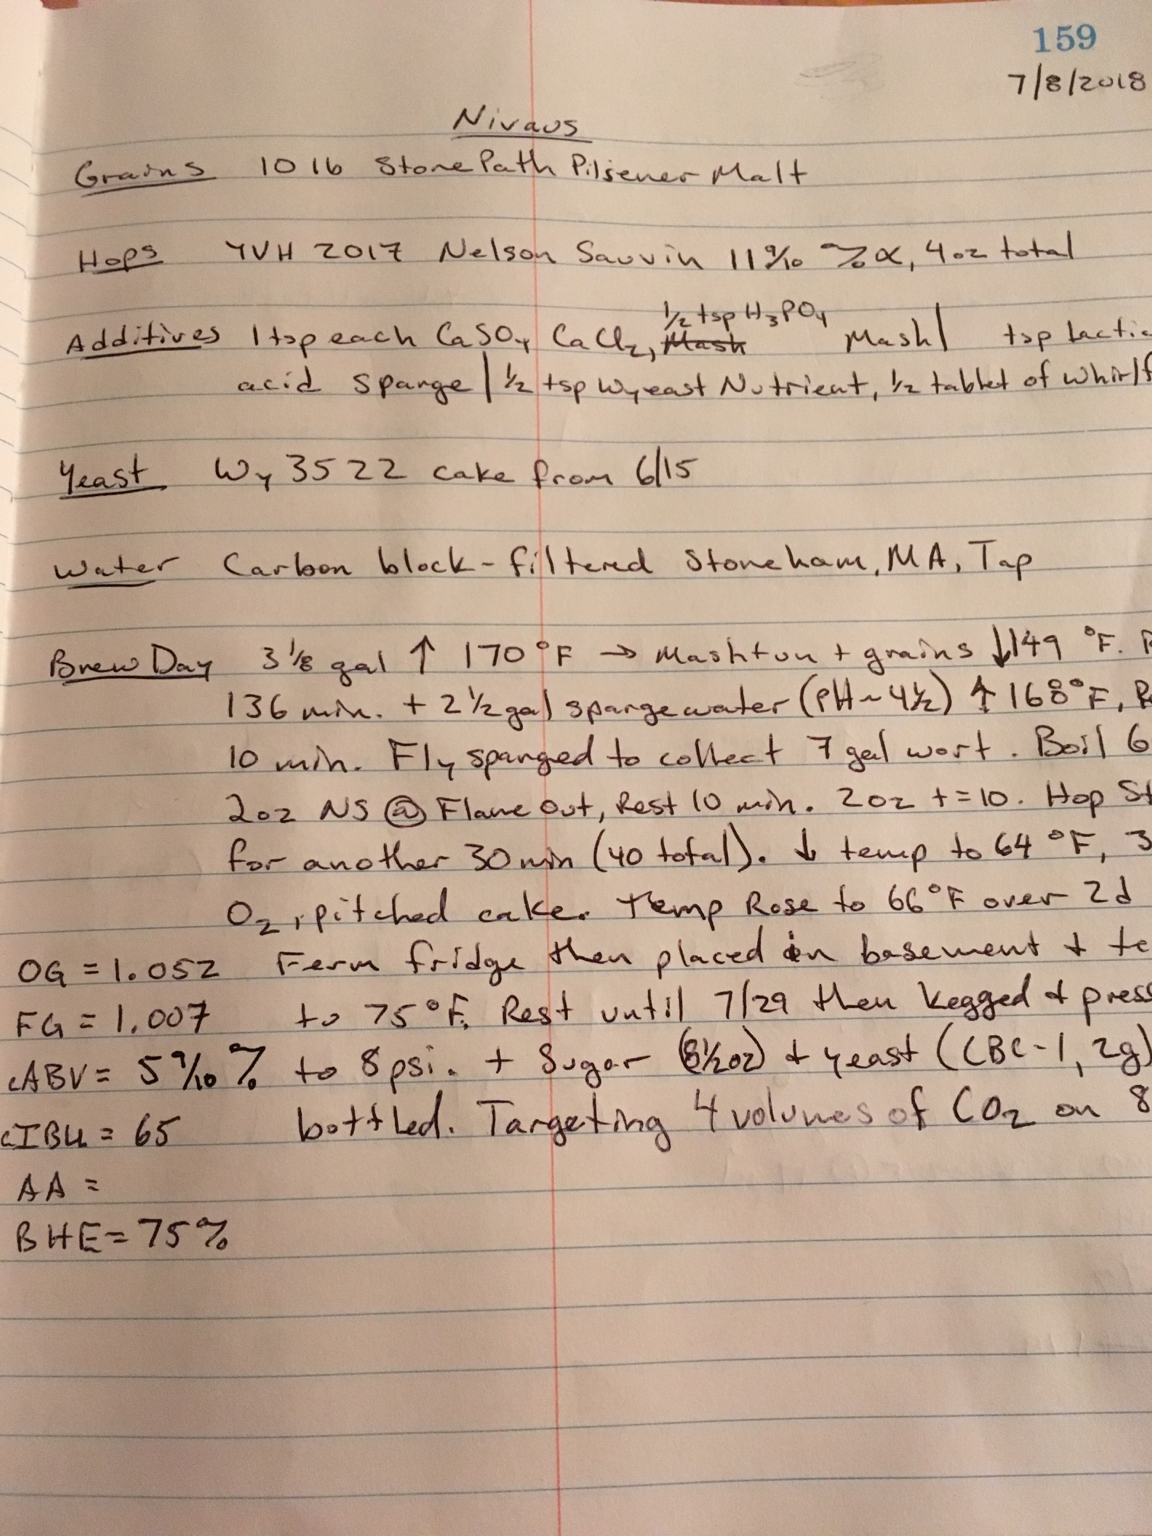 159
7/8/2018
Nivaos
Grains 10 lb Stone Path Pilsener Malt
Hops YVH 2017 Nelson Sauvin 11 % α, 4 oz total
1/2 tsp H3PO4
Additives 1 tsp each CaSO4 CaCl2, Mash Mash | tsp Lactic
acid sparge | 1/2 tsp Wyeast Nutrient, 1/2 tablet of Whirlf
Yeast Wy 3522 cake from 6/15
Water Carbon block-filtered Stoneham, MA, Tap
Brew Day 3 1/8 gal ↑ 170 °F → Mashtun + grains ↓ 149 °F. R
136 min. + 2 1/2 gal sparge water (pH ~ 4 1/2) ↑ 168 °F, R
10 min. Fly sparged to collect 7 gal wort. Boil 6
2oz NS @ Flame out, Rest 10 min. 2oz t=10. Hop St
for another 30 min (40 total). ↓ temp to 64 °F, 3
O2, pitched cake. Temp Rose to 66 °F over 2d
OG = 1.052 Ferm fridge then placed in basement + te
FG = 1.007 to 75 °F. Rest until 7/29 then kegged + press
cABV = 5 9/10 % to 8 psi. + Sugar (8 1/2 oz) + yeast (CBC-1, 2g)
cIBU = 65 bottled. Targeting 4 volumes of CO2 on 8
AA =
BHE = 75%